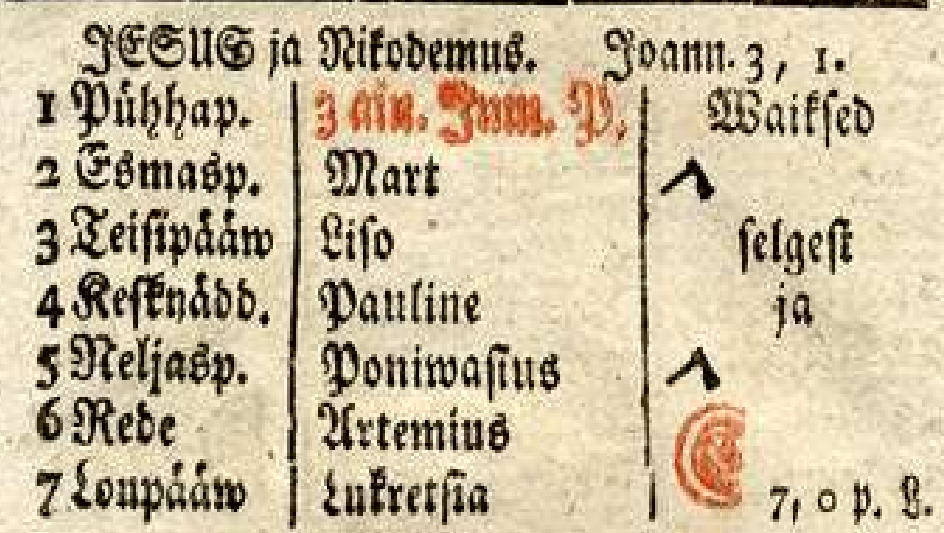 JESUS ja Nikodemus. Joann. 3, 1.
1 Pühhap. 3 ain. Jum. P. Waiksed
2 Esmasp. Mart
3 Teisipääw Liso selgest
4 Kesknädd. Pauline ja
5 Neljasp. Poniwasius
6 Rede Artemius
7 Loupääw Lukretsia 7, 0 p. L.